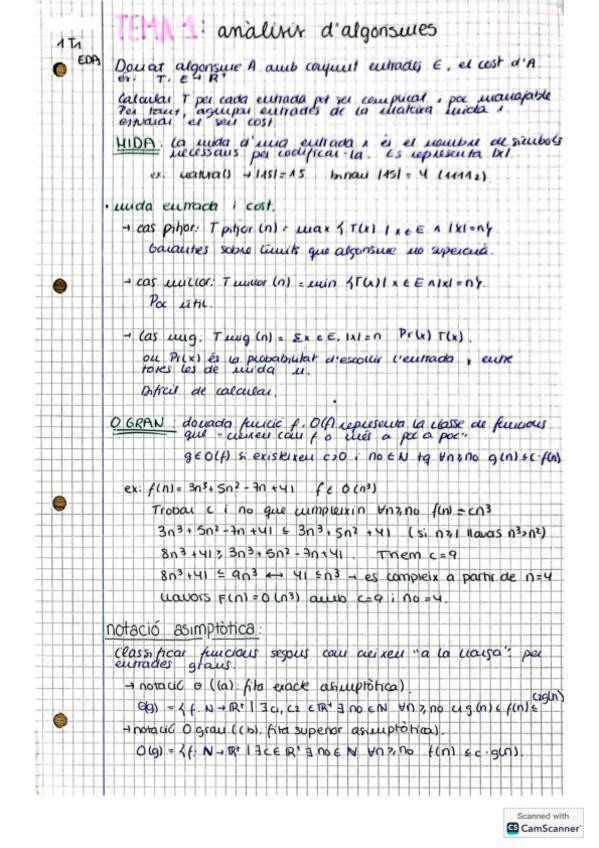 TEMA 1: anàlisis d'algorismes
1 T1
EDA
Donat algorisme A amb conjunt entrades E, el cost d'A
és: T: E→R⁺
Calcular T per cada entrada pot ser complicat i poc manejable
Per tant, agrupar entrades de la mateixa mida i
estudiar el seu cost.
MIDA: La mida d'una entrada x és el nombre de símbols
necessaris per codificar-la. Es representa |x|
ex: naturals → |15| = 15 binari |15| = 4 (1111₂)
· mida entrada i cost.
→ cas pitjor: Tpitjor(n) = max {T(x) | x ∈ E ∧ |x|=n}
Garanties sobre límits que algorisme no superarà.
→ cas millor: Tmillor(n) = min {T(x) | x ∈ E ∧ |x|=n}.
Poc útil.
→ Cas mig. Tmig(n) = Σx ∈ E, |x|=n Pr(x) T(x).
on Pr(x) és la probabilitat d'escollir l'entrada x entre
totes les de mida n.
Difícil de calcular.
O GRAN: donada funció f, O(f) representa la classe de funcions
que "creixen com f o més a poc a poc"
g∈O(f) si existeixen c>0 i n0∈N tq ∀n≥n0 g(n)≤c·f(n)
ex: f(n) = 3n³+5n²-7n+41 f ∈ O(n³)
Trobar c i n0 que cumpleixin ∀n≥n0 f(n)≤cn³
3n³+5n²-7n+41 ≤ 3n³+5n²+41 (si n≥1 llavors n³>n²)
8n³+41 ≥ 3n³+5n²-7n+41. Triem c=9
8n³+41 ≤ 9n³ ↔ 41 ≤ n³ → es compleix a partir de n=4
Llavors F(n)=O(n³) amb c=9 i n0=4.
notació asimptòtica:
Classificar funcions segons com creixen "a la llarga": per
entrades grans.
→ notació θ ((a): fita exacte asimptòtica).
θ(g) = {f: N→R⁺ | ∃c1, c2 ∈ R⁺ ∃ n0∈N ∀n≥n0 c1g(n) ≤ f(n) ≤ c2g(n)
→ notació O gran ((b): fita superior asimptòtica).
O(g) = {f: N→R⁺ | ∃c∈R⁺ ∃n0∈N ∀n≥n0 f(n) ≤ c·g(n).
Scanned with
CS CamScanner